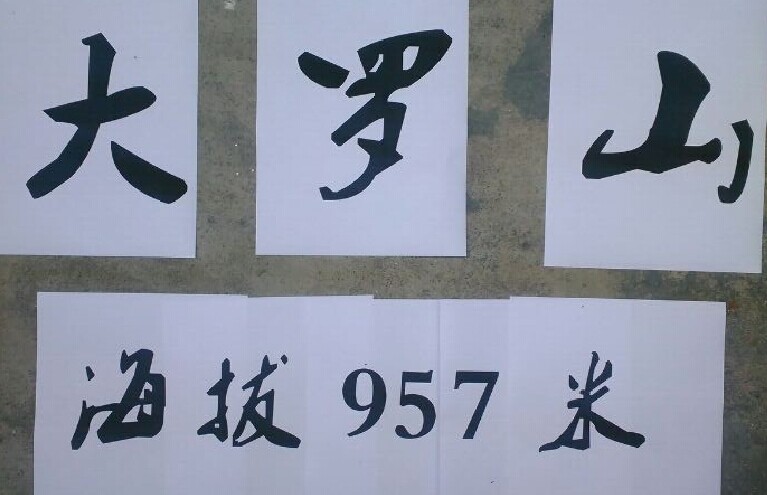 大罗山
海拔957米